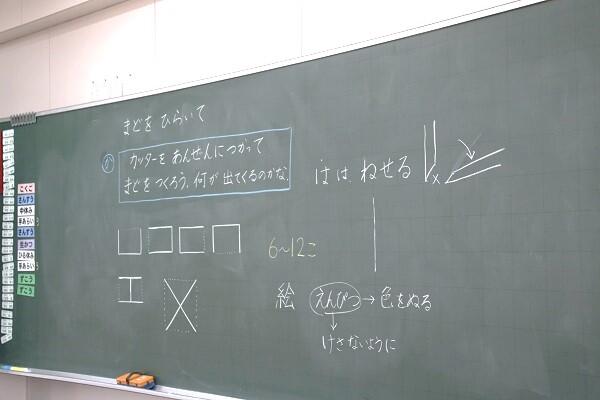 まどを ひらいて
め
カッターを あんぜんにつかって
まどをつくろう。何が 出てくるのかな。
はは、ねせる
×
6〜12こ
絵 えんぴつ→色をぬる
↓
けさないように
こくご
さんすう
中休み
手あらい
さんすう
生かつ
ひる休み
手あらい
ずこう
ずこう